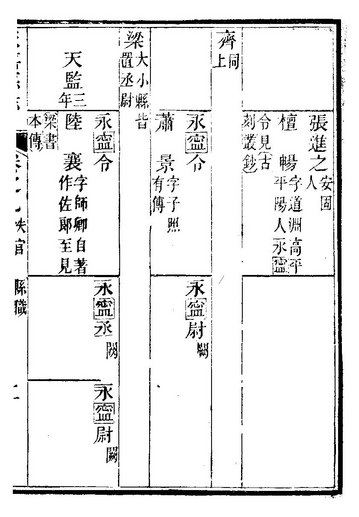 張進之 安固人
檀暢 字道淵高平
平陽人永寧
令見古
刻叢鈔
齊 同上
永寧令
蕭景 字子照
有傳
永寧尉 闕
梁 大小縣皆
置丞尉
永寧令
永寧丞 闕
永寧尉 闕
天監三年
陸襄 字師卿自著
作佐郎至見
梁書
本傳
秩官 縣職